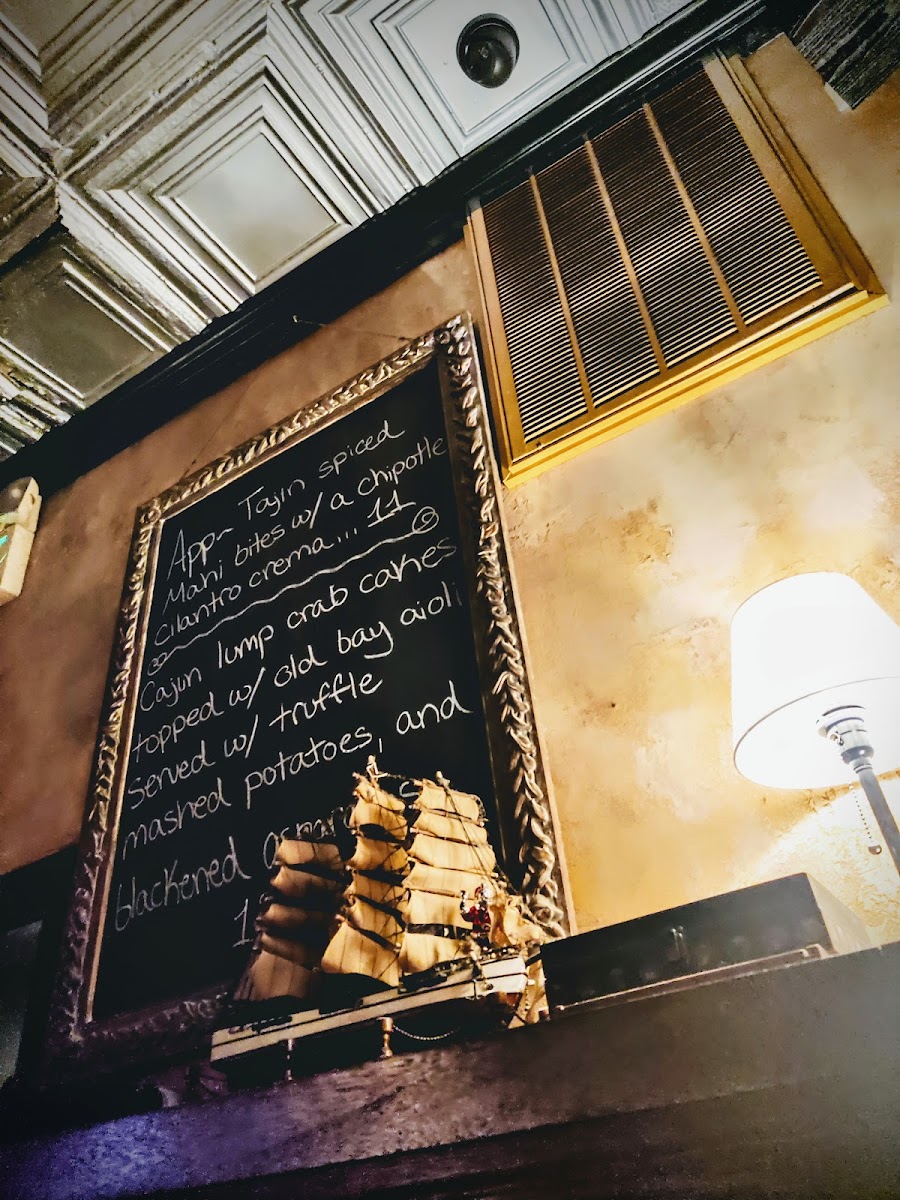 App~ Tajin spiced
Mahi bites w/ a chipotle
cilantro crema... 11
Cajun lump crab cakes
topped w/ old bay aioli
Served w/ truffle
mashed potatoes, and
blackened